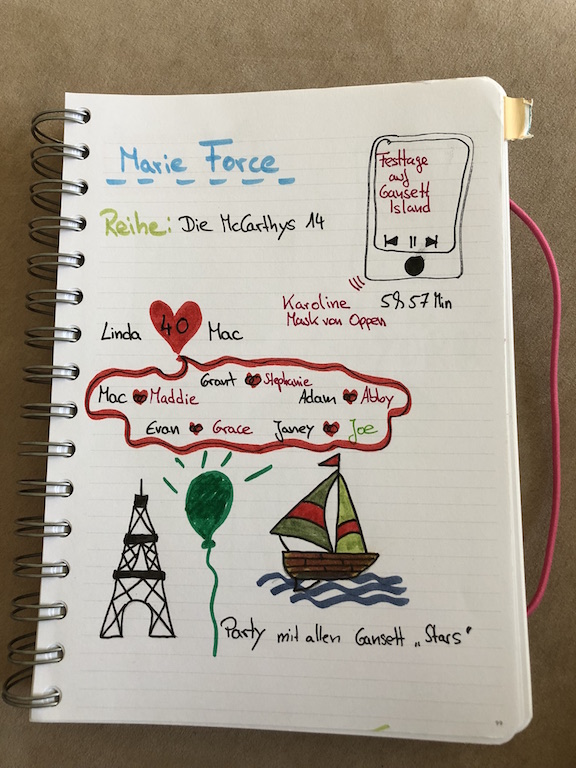 Marie Force
Festtage
auf
Gansett
Island
Reihe: Die McCarthys 14
Karoline
Mask von Oppen
5h 57 Min
Linda 40 Mac
Grant Stephanie
Mac Maddie Adam Abby
Evan Grace Janey Joe
Party mit allen Gansett „Stars"